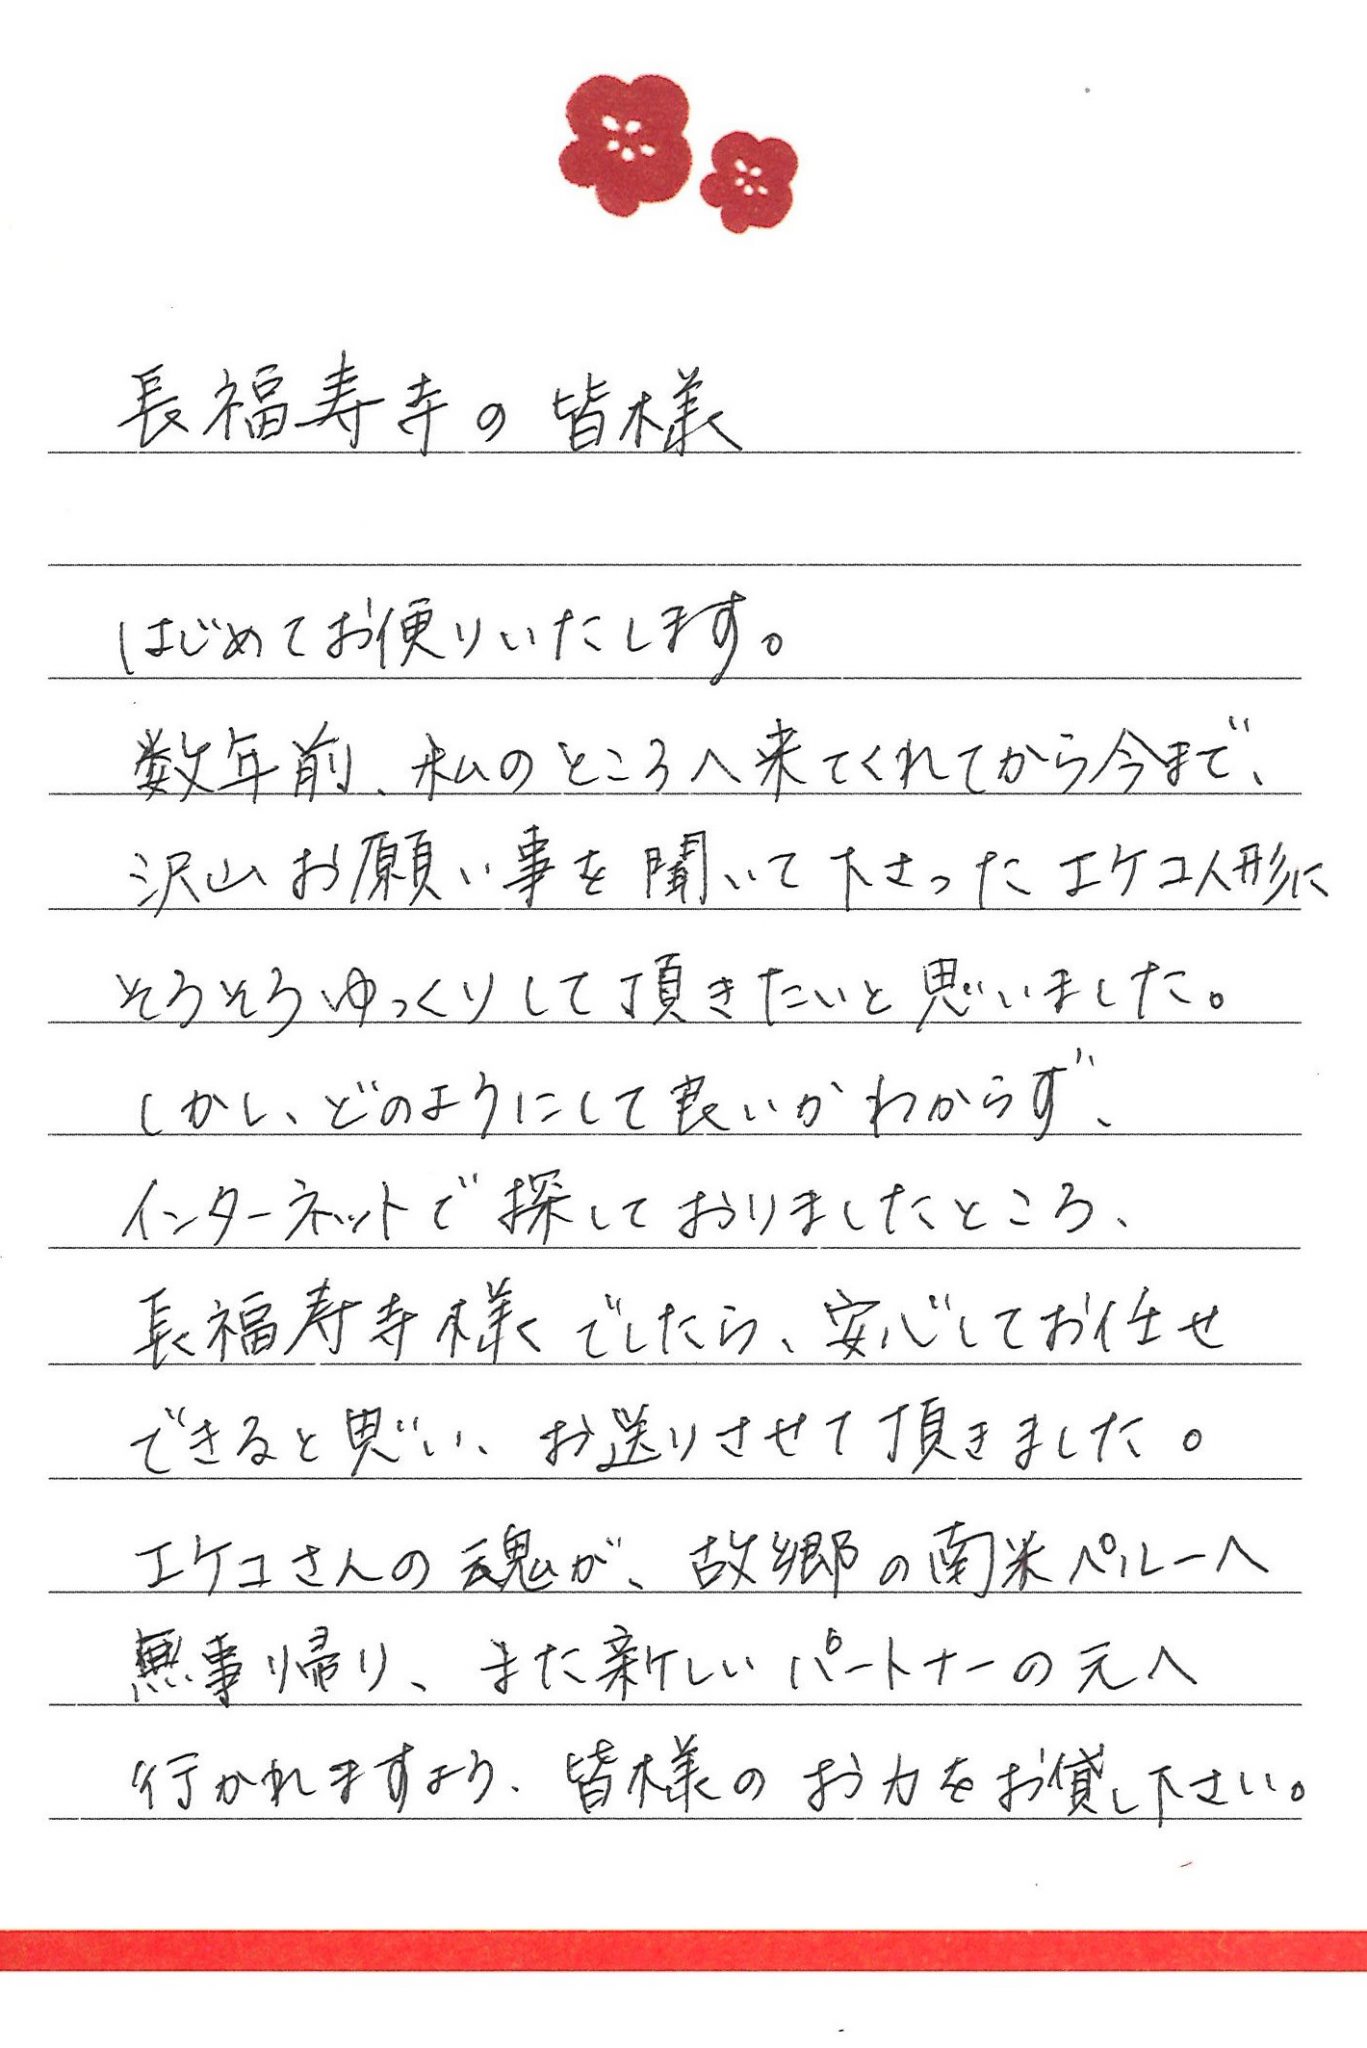 長福寿寺の皆様
はじめてお便りいたします。
数年前、私のところへ来てくれてから今まで、
沢山お願い事を聞いて下さったエケコ人形に
そろそろゆっくりして頂きたいと思いました。
しかし、どのようにして良いかわからず、
インターネットで探しておりましたところ、
長福寿寺様でしたら、安心してお任せ
できると思い、お送りさせて頂きました。
エケコさんの魂が、故郷の南米ペルーへ
無事り帰り、また新しいパートナーの元へ
行かれますよう、皆様のお力をお貸し下さい。